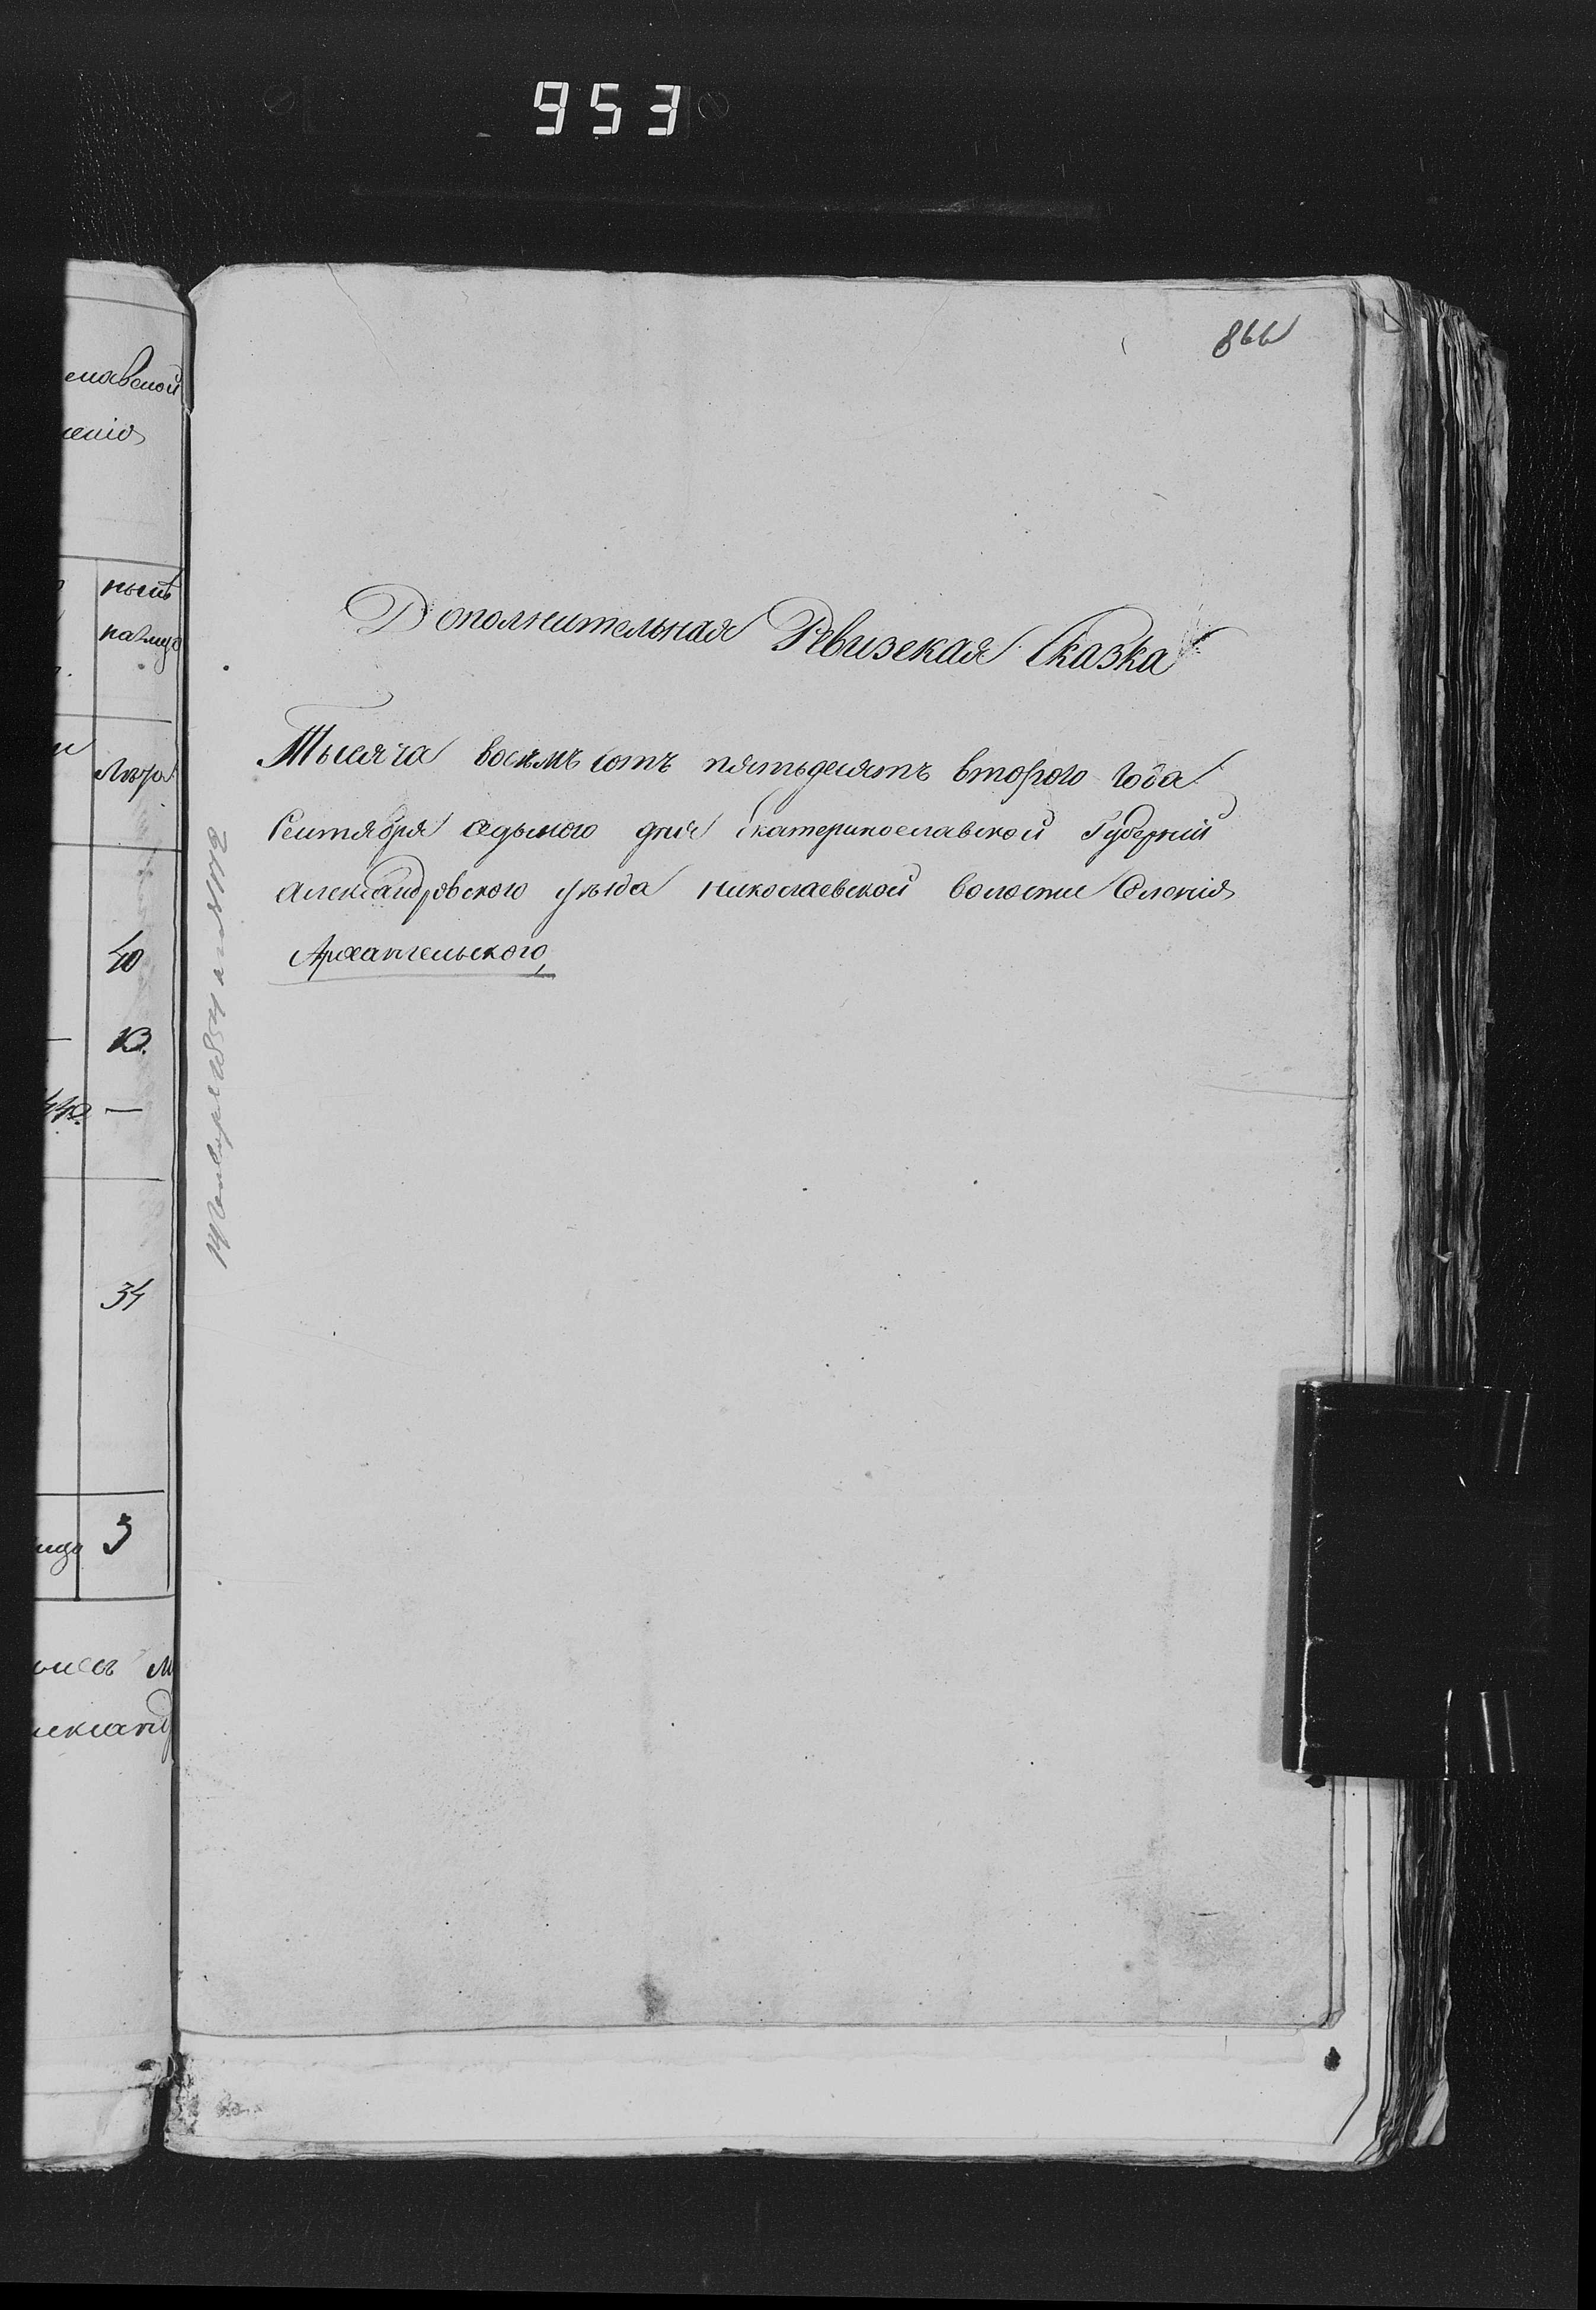 953
866
Дополнительная Ревизская Сказка
Тысяча восемъ сотъ пятьдесятъ второго года
Сентября седьмого дня Екатеринославской Губерніи
Александровского уѣзда Николаевской волости Селенія
Архангельского,
славской
ленія
нынѣ
налицо
Лѣта
40
13.
—
34
лицо 3